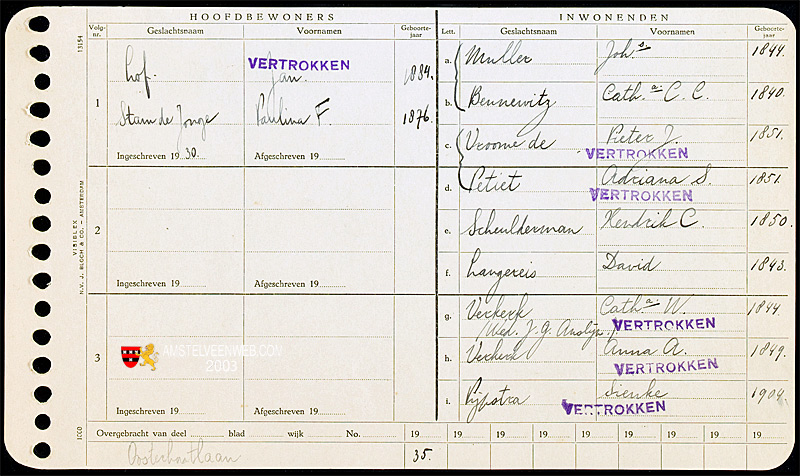 HOOFDBEWONERS
Volg-nr. Geslachtsnaam Voornamen Geboorte-jaar
1 Hof. Jan. 1884.
VERTROKKEN
Stam de Jonge Paulina F. 1876.
Ingeschreven 19 30. Afgeschreven 19
2
Ingeschreven 19 Afgeschreven 19
3
AMSTELVEENWEB.COM
2003
Ingeschreven 19 Afgeschreven 19
INWONENDEN
Lett. Geslachtsnaam Voornamen Geboorte-jaar
a. Muller Joh.s 1844.
b. Bennewitz Cath.a C. C. 1840.
c. Vroome de Pieter J. 1851.
VERTROKKEN
d. Petiet Adriana S. 1851.
VERTROKKEN
e. Scheulderman Hendrik C. 1850.
f. Langereis David 1843.
g. Verkerk Cath.a W. 1844.
Wed. J. G.
VERTROKKEN
h. Verkerk Anna A. 1849.
VERTROKKEN
i. Rijpstra Sienke 1904.
VERTROKKEN
Overgebracht van deel blad wijk No. 19 19 19 19 19 19 19 19 19 19
35.
13154
VISIBLEX
N.V. J. BLOCH & CO. - AMSTERDAM
1000